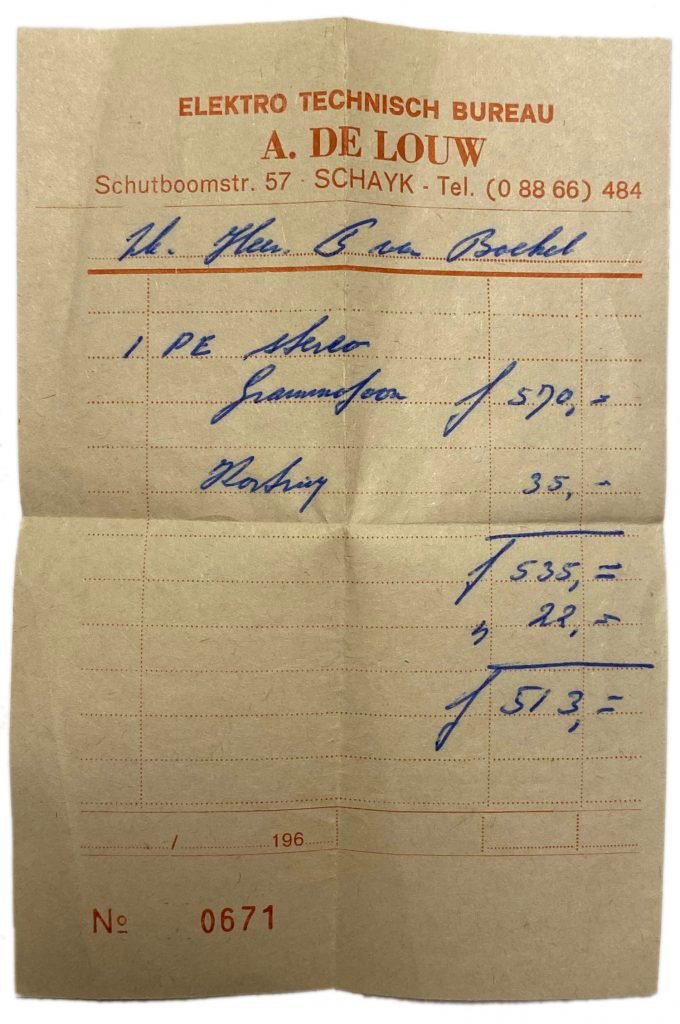 ELEKTRO TECHNISCH BUREAU
A. DE LOUW
Schutboomstr. 57 · SCHAYK - Tel. (0 88 66) 484
Heer. van Boekel
1 PE stereo
Grammofoon f 570,=
Korting 35,-
f 535,=
" 22,=
f 513,=
/ 196
Nº 0671